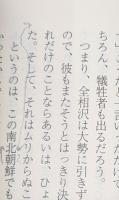 ちろん、犠牲者も出るだろう。
つまり、全相沢は大勢に引きず
ので、彼もまたそうとはっきり決
れだけのことならあるいは、ひょ
た。そして、それはムリからぬこ
というのは、この南北朝鮮でも